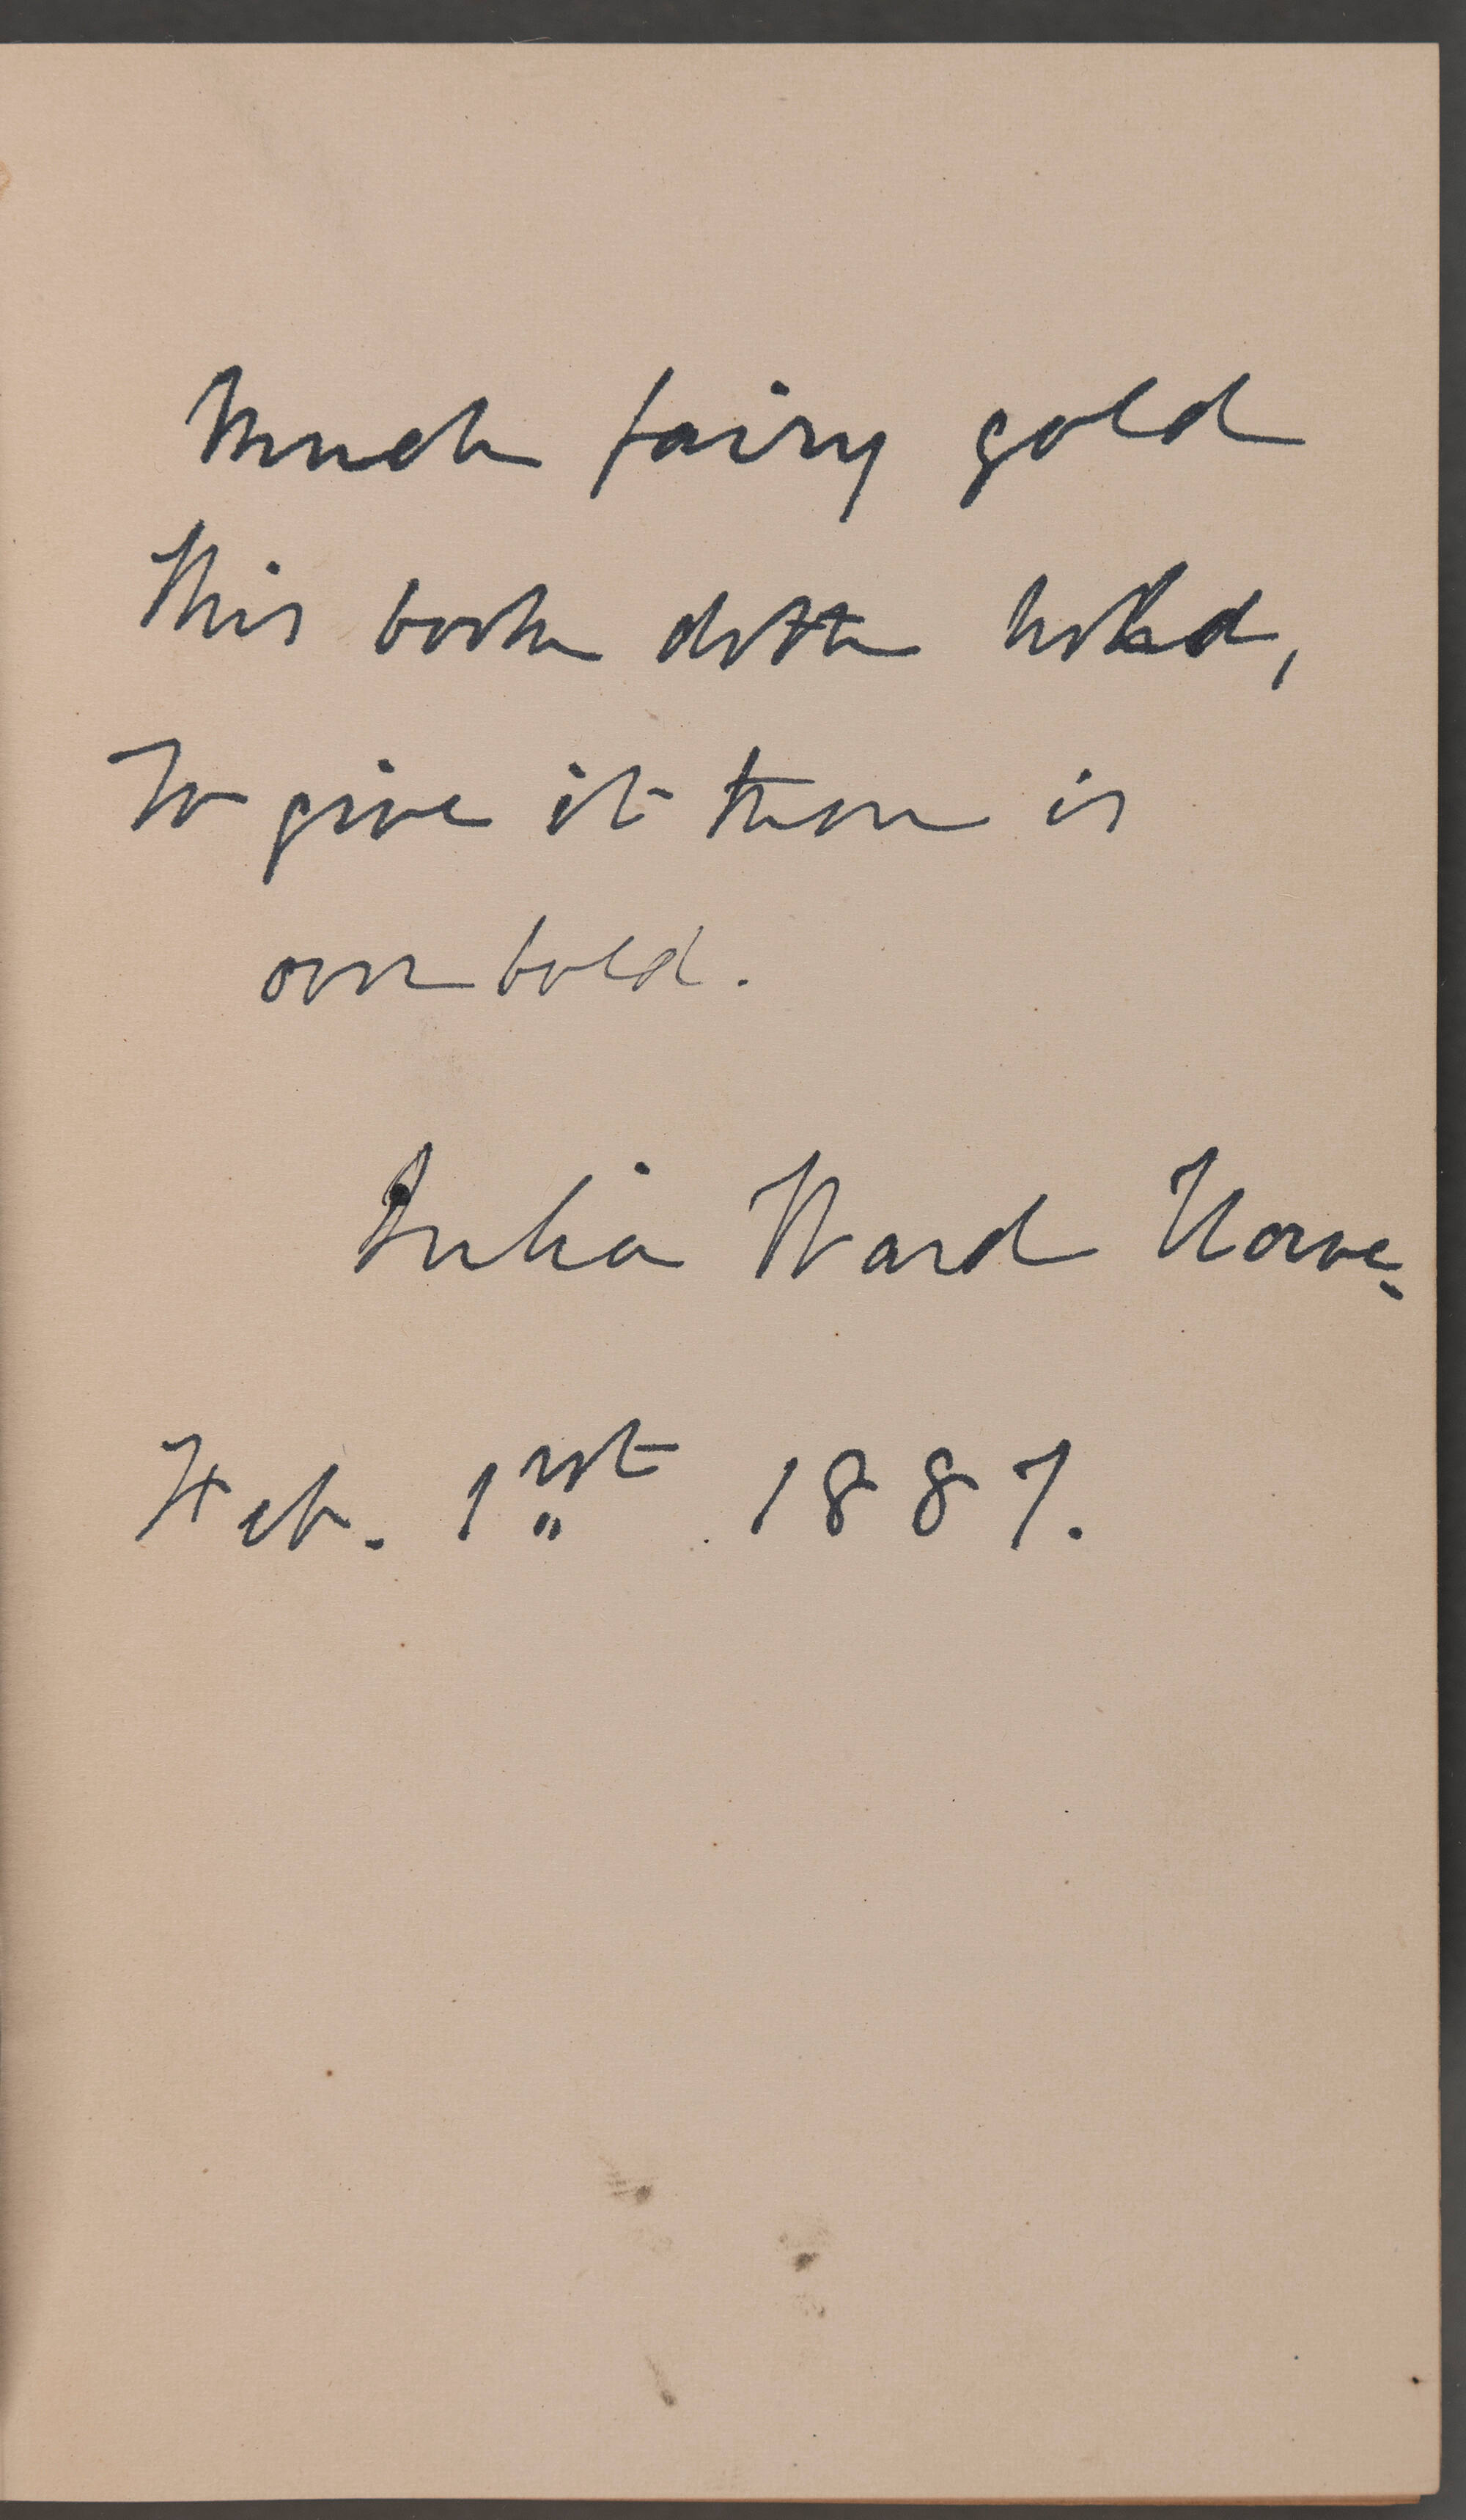 Much fairy gold
this book doth hold,
To give it is
over bold.
Julia Ward Howe.
Feb. 1rst 1887.